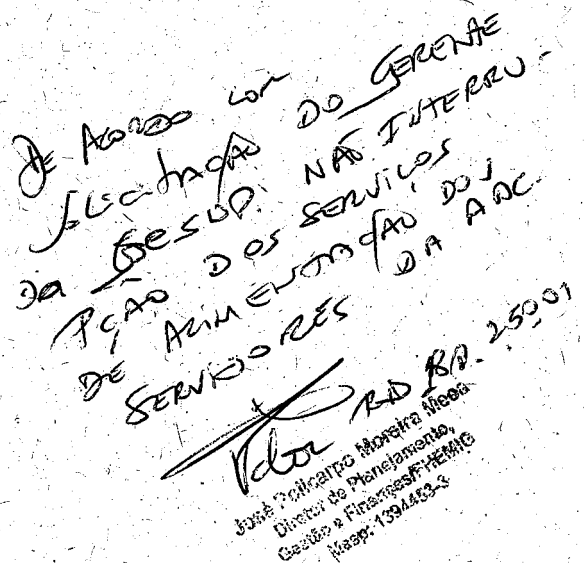 De Acordo com
Solicitação do GERENTE
da GESUP. NÃO INTERRU-
PÇÃO DOS SERVIÇOS
DE ALIMENTAÇÃO DOS
SERVIDORES DA ADC.
José Policarpo Moreira
Diretor de Planejamento,
Gestão e Finanças/FHEMIG
Masp: 1394453-3